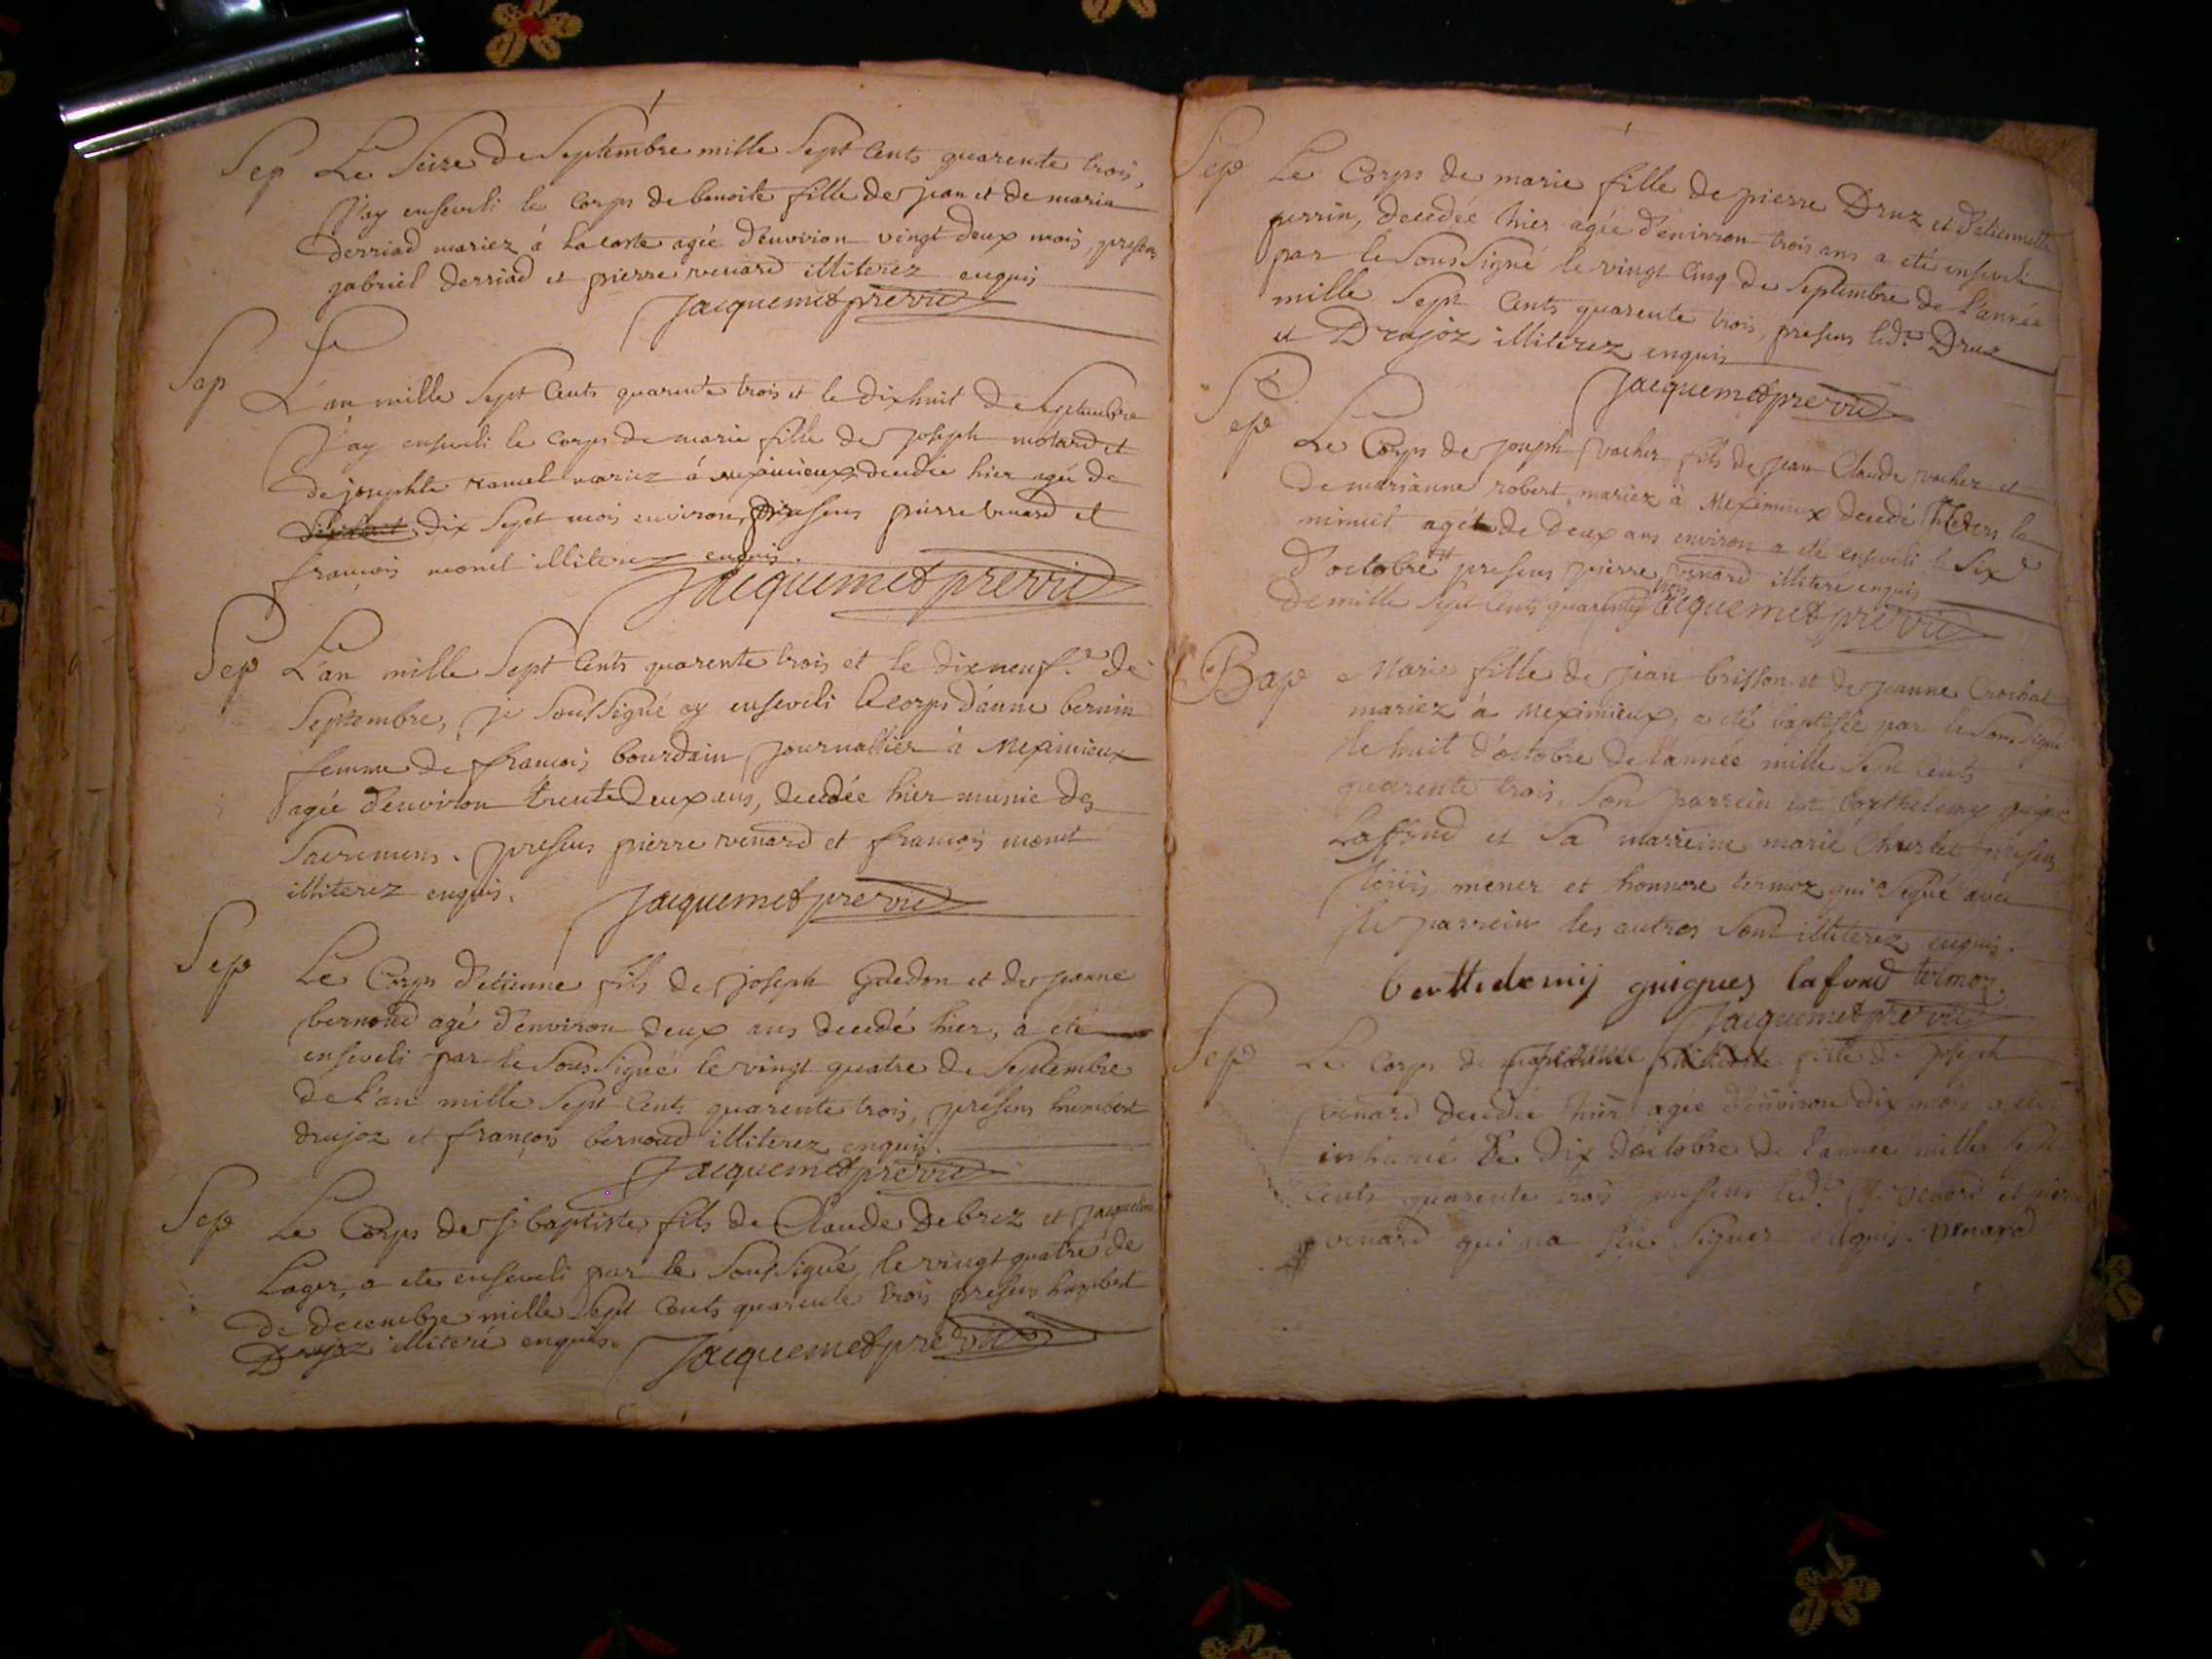 Sep Le Seize de Septembre mille Sept Cents quarente trois,
J'ay enseveli le Corps de benoite fille de jean et de marie
derriad mariez á la coste agée d'environ vingt deux mois, presens
gabriel derriad et pierre venard illiterez enquis
Jacquemet pre vic
Sep
L'an mille Sept Cents quarente trois et le dixhuit de Septembre
J'ay enseveli le corps de marie fille de joseph molard et
de josephte ramel mariez á meximieux decedée hier agée de
dix Sept mois environ, presens pierre venard et
francois monet illiterez enquis.
Jacquemet pre vic
Sep L'an mille Sept Cents quarente trois et le dix neuf.e de
Septembre, je Soussigné ay enseveli le corps d'anne bernin
femme de francois bourdain journallier à Meximieux
agée d'environ trente deux ans, decedée hier munie des
Sacremens. presens pierre venard et francois monet
illiterez enquis.
Jacquemet pre vic
Sep Le Corps d'etienne fils de joseph Guedon et de jeanne
bernoud agé d'environ deux ans decedé hier, a eté
enseveli par le Soussigné le vingt quatre de Septembre
de l'an mille Sept Cents quarente trois, presens humbert
drujoz et françois bernoud illiterez enquis.
Jacquemet pre vic
Sep Le Corps de j. baptiste fils de Claude Debrez et jacqueline
Lager, a eté enseveli par le Soussigné, le vingt quatre de
de decembre mille Sept Cents quarente trois presens humbert
Drujoz illiteré enquis.
Jacquemet pre vic
Sep Le Corps de marie fille de pierre Druz et d'etiennette
perrin, decedée hier agée d'environ trois ans a eté enseveli
par le Soussigné le vingt Cinq de Septembre de l'année
mille Sept Cents quarente trois, presens led.t Druz
et Drujoz illiterez enquis
Jacquemet pre vic
Sep
Le Corps de joseph vacher fils de jean Claude vacher et
de marianne robert mariez à Meximieux decedé hier vers la
minuit agé de deux ans environ a eté enseveli le Six.e
d'octobre presens pierre venard illiteré enquis
de mille Sept Cents quarente trois Jacquemet pre vic
Bap Marie fille de jean brisson et de jeanne Crochat
mariez à Meximieux, a eté baptisée par le Soussigné
le huit d'octobre de l'année mille Sept Cents
quarente trois, Son parrein est barthelemy guigue
Laffond et Sa marreine marie presens
Loüis mener et honnore termoz qui a Signé avec
le parrein les autres Sont illiterez enquis.
berthelemij guigues lafond termoz.
Jacquemet pre vic
Sep Le Corps de fille de joseph
venard decedée hier agée d'environ dix mois a eté
inhumé le dix d'octobre de l'année mille Sept
Cents quarente trois presens led.t j. venard et pierre
venard qui n'a Sçu Signer enquis. venard